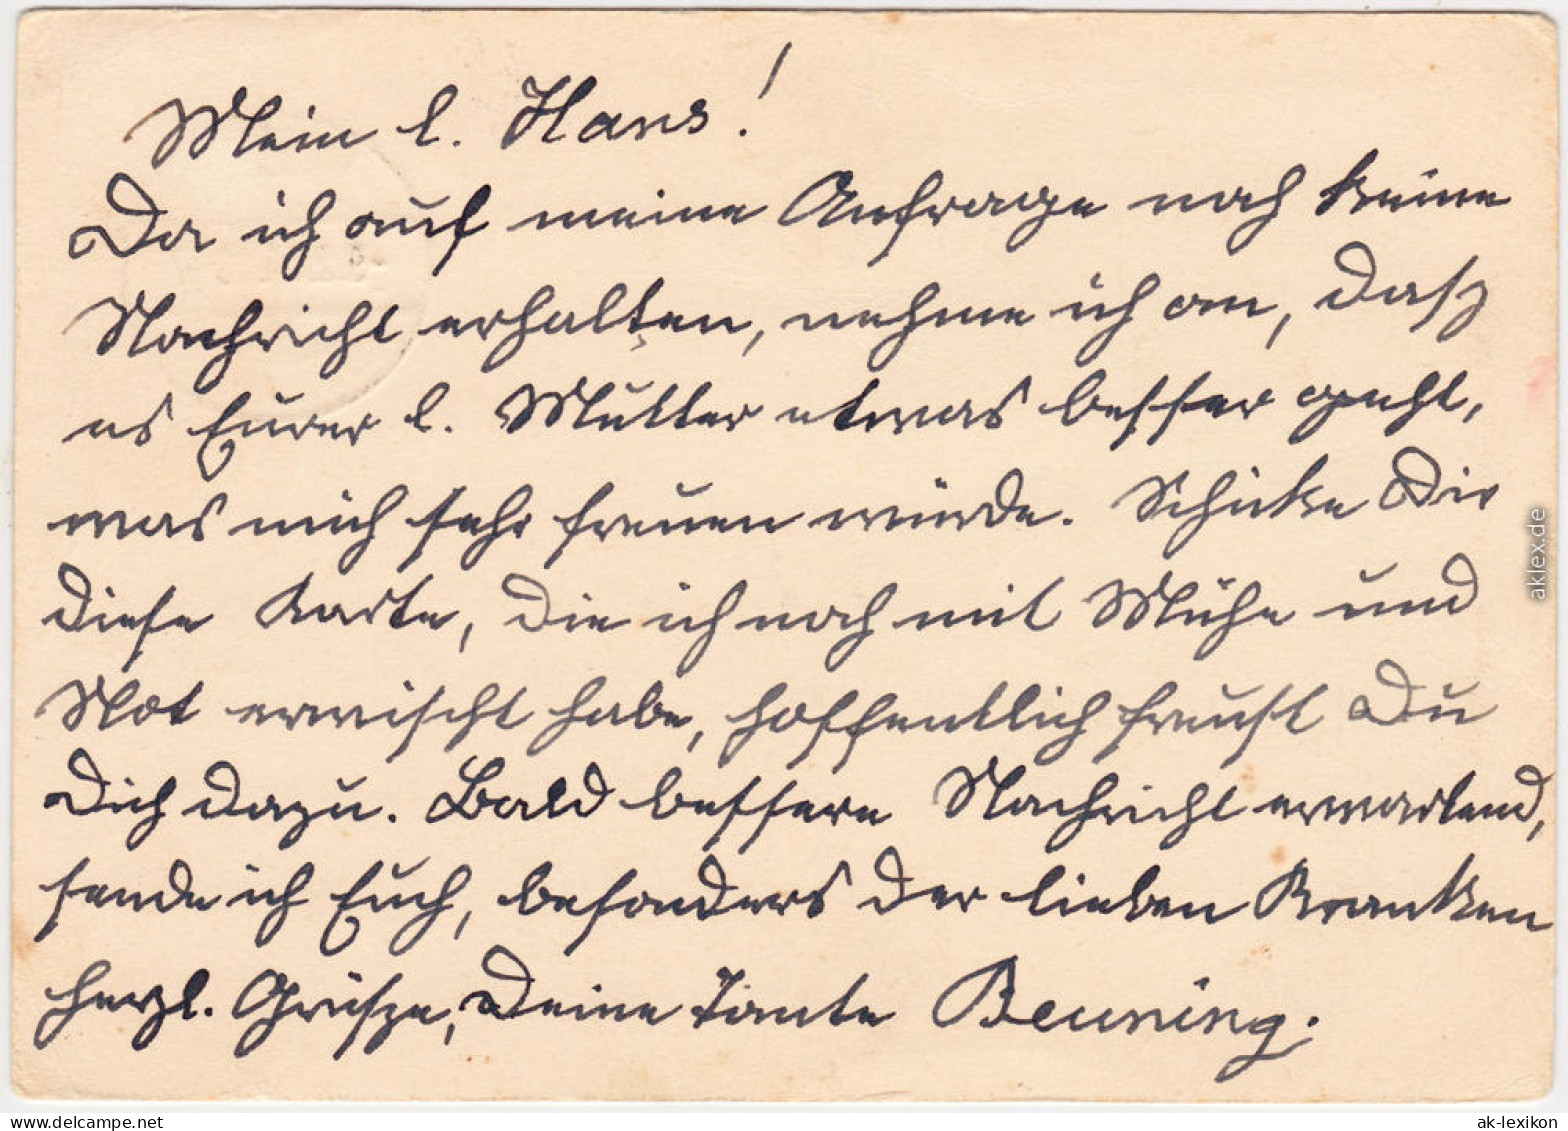 Mein l. Hans!
Da ich auf meine Anfrage noch keine
Nachricht erhalten, nehme ich an, daß
es Eurer l. Mutter etwas besser geht,
was mich sehr freuen würde. Schicke Dir
diese Karte, die ich noch mit Mühe und
Not erwischt habe, hoffentlich freust Du
Dich dazu. Bald bessere Nachricht erwartend,
sende ich Euch, besonders der lieben Kranken
herzl. Grüße, Deine Tante Beuning.
aklex.de
www.delcampe.net
ak-lexikon